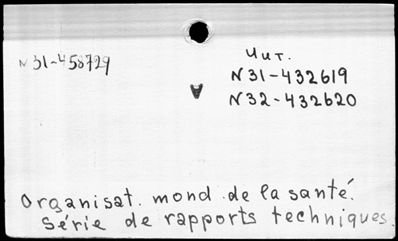 N31-458729
Чит.
N31-432619
N32-432620
A
Organisat. mond de la santé.
Série de rapports techniques.